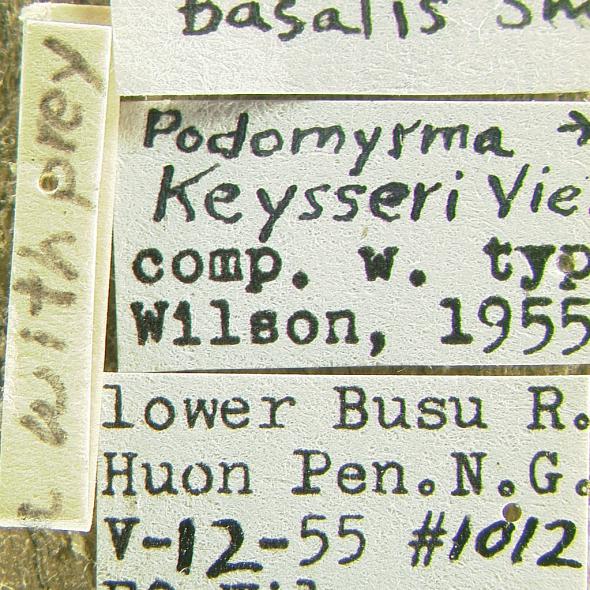 basalis Sm
Podomyrma →
Keysseri Vie
comp. w. typ
Wilson, 1955
lower Busu R.
Huon Pen. N.G.
V-12-55 #1012
with prey